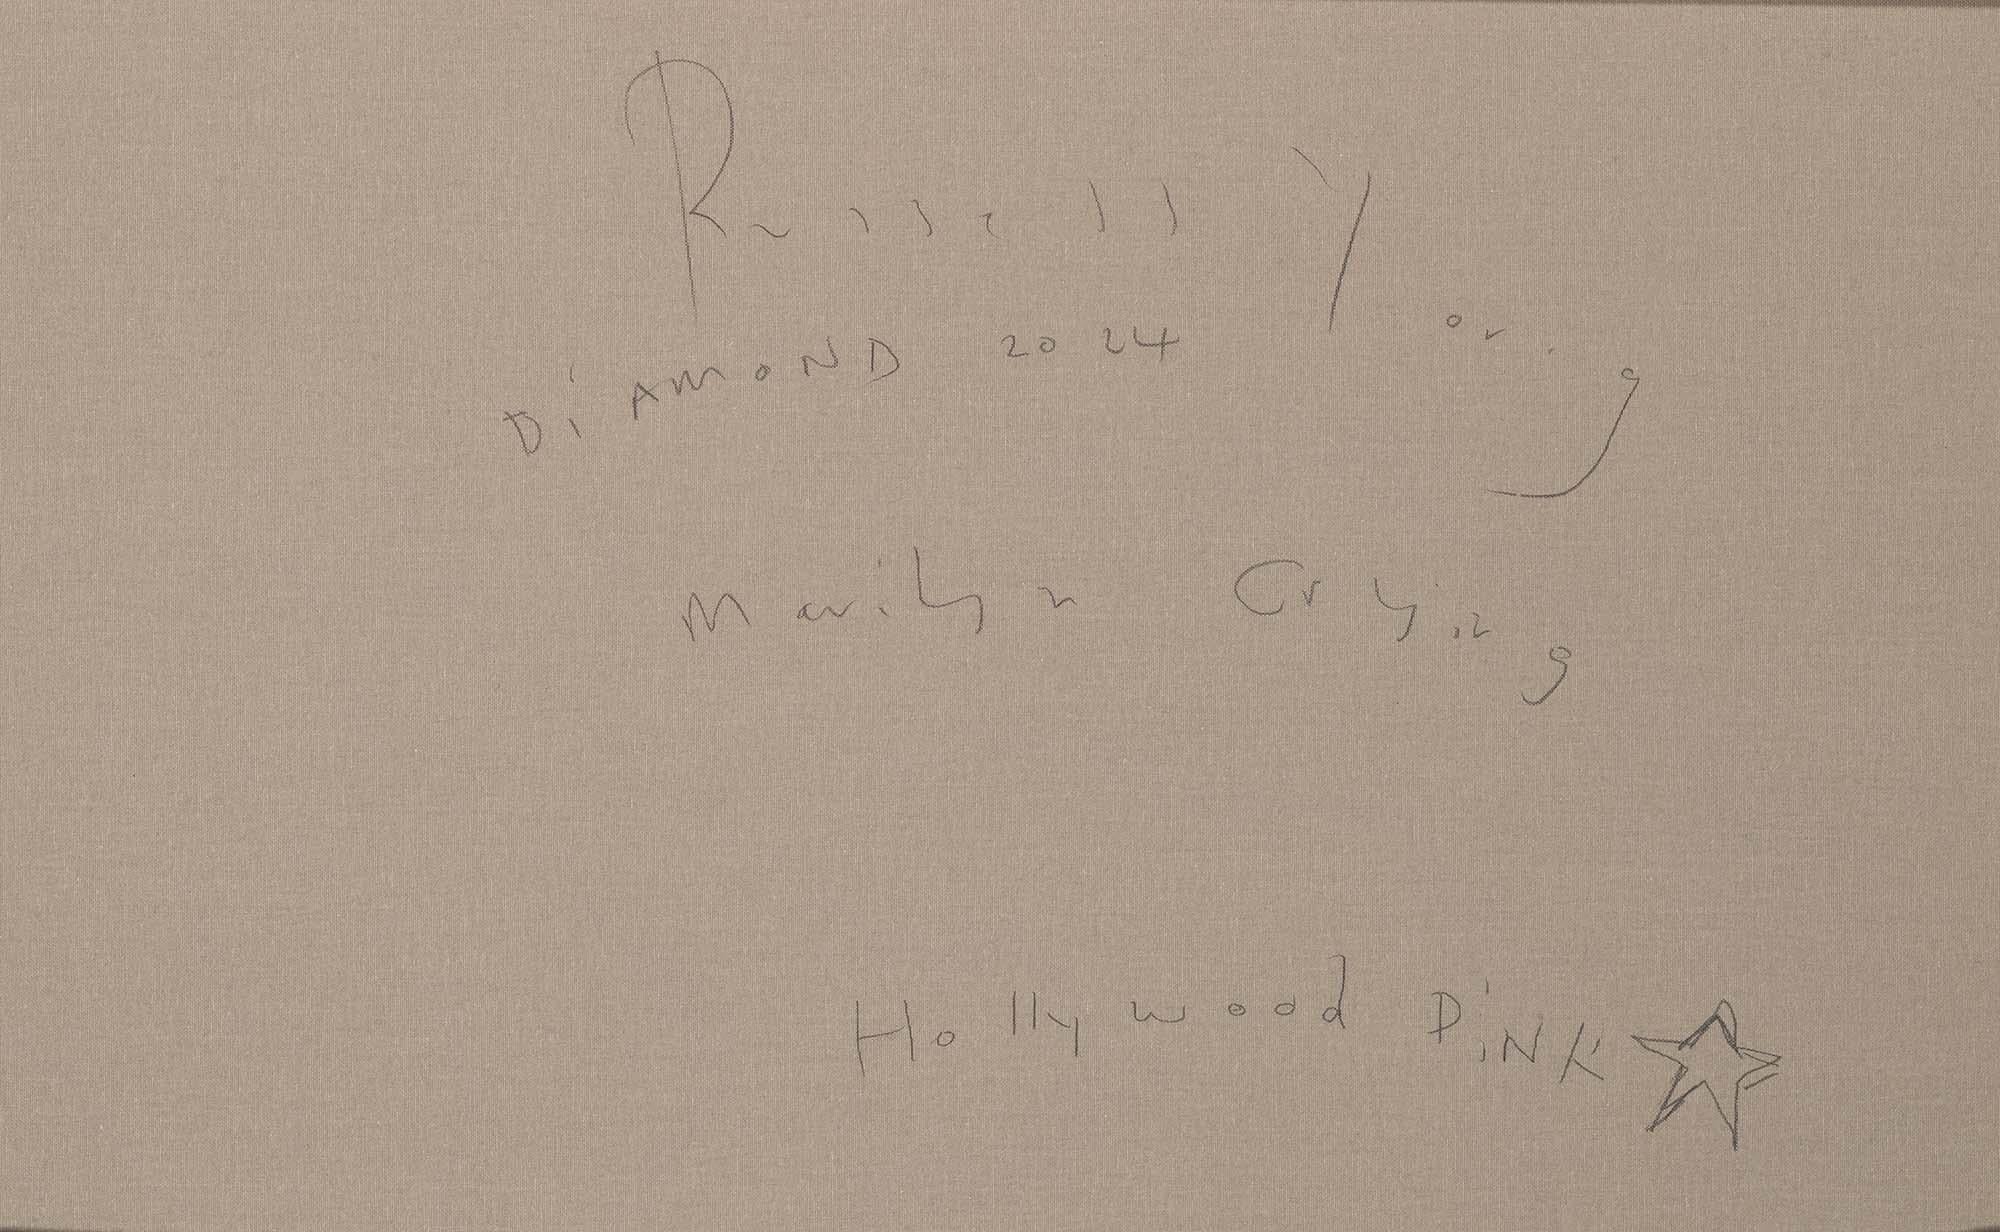 Russell Young
DiAMOND 2024
Marilyn Crying
Hollywood PiNK